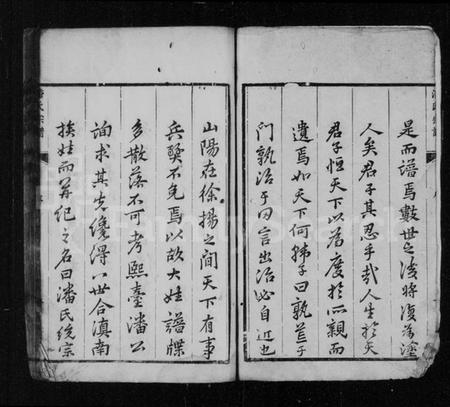 是而譜焉數世之後將復為塗
人矣君子其忍乎哉人生於天
君子恒天下以為度於所親而
遺焉如天下何韩子曰孰
門孰治于曰言出治必自近也
山陽在徐揚之間天下有事
兵燹不免焉以故大姓譜牒
多散落不可考熙臺潘公
洵求其先僅得八世合滇南
族姓而并紀之名曰潘氏統宗